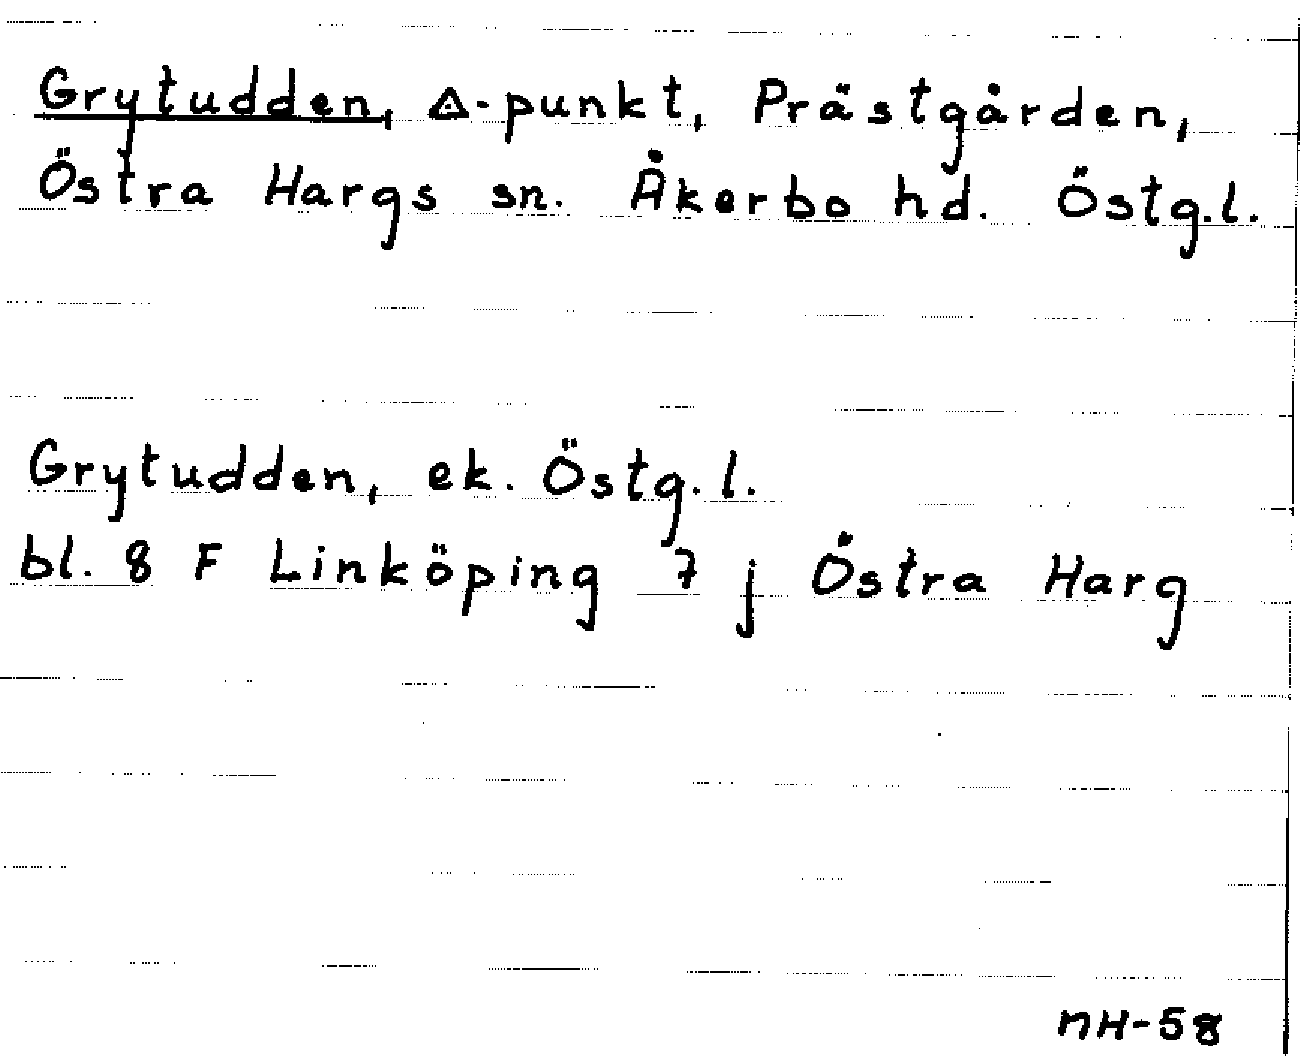 Grytudden, △-punkt, Prästgården,
Östra Hargs sn. Åkerbo hd. Östg.l.
Grytudden, ek. Östg.l.
bl. 8 F Linköping 7 j Östra Harg
NH-58